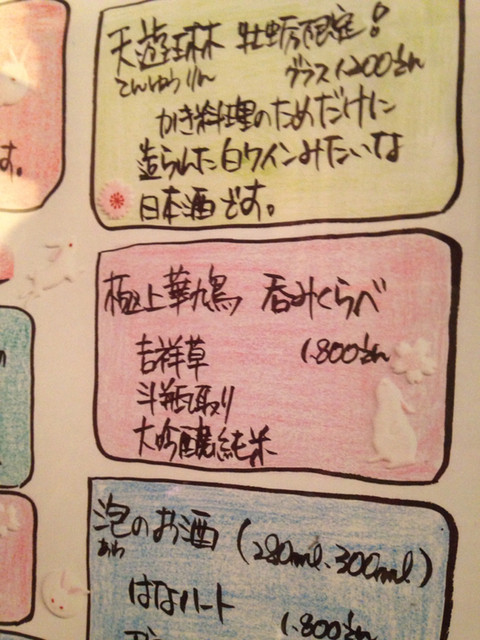 天遊琳 牡蛎限定!
てんゆうりん グラス1,200えん
かき料理のためだけに
造られた白ワインみたいな
日本酒です。
す。
極上華鳩 呑みくらべ
吉祥草 1,800えん
斗瓶取り
大吟醸純米
の
泡のお酒 (280ml、300ml)
あわ
はなハート
1,800えん